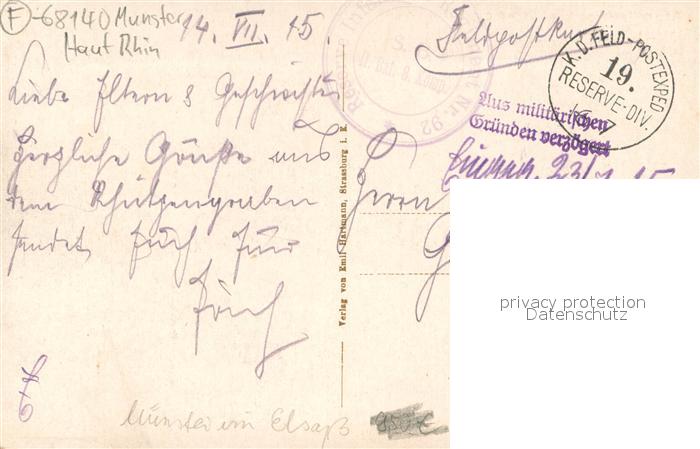 F-68140 Munster
Haut Rhin
14. VII. 15.
Feldpostkarte
K.D. FELD-POSTEXPED
19.
RESERVE-DIV.
Nr. 92
Aus militärischen
Gründen verzögert
Liebe Eltern & Geschwister
Herzliche Grüße aus
dem Schützengraben
sendet Euch Euer
Verlag von Emil Hartmann, Strassburg i. E.
Herrn
23/7 15
privacy protection
Datenschutz
Münster im Elsaß
950 €